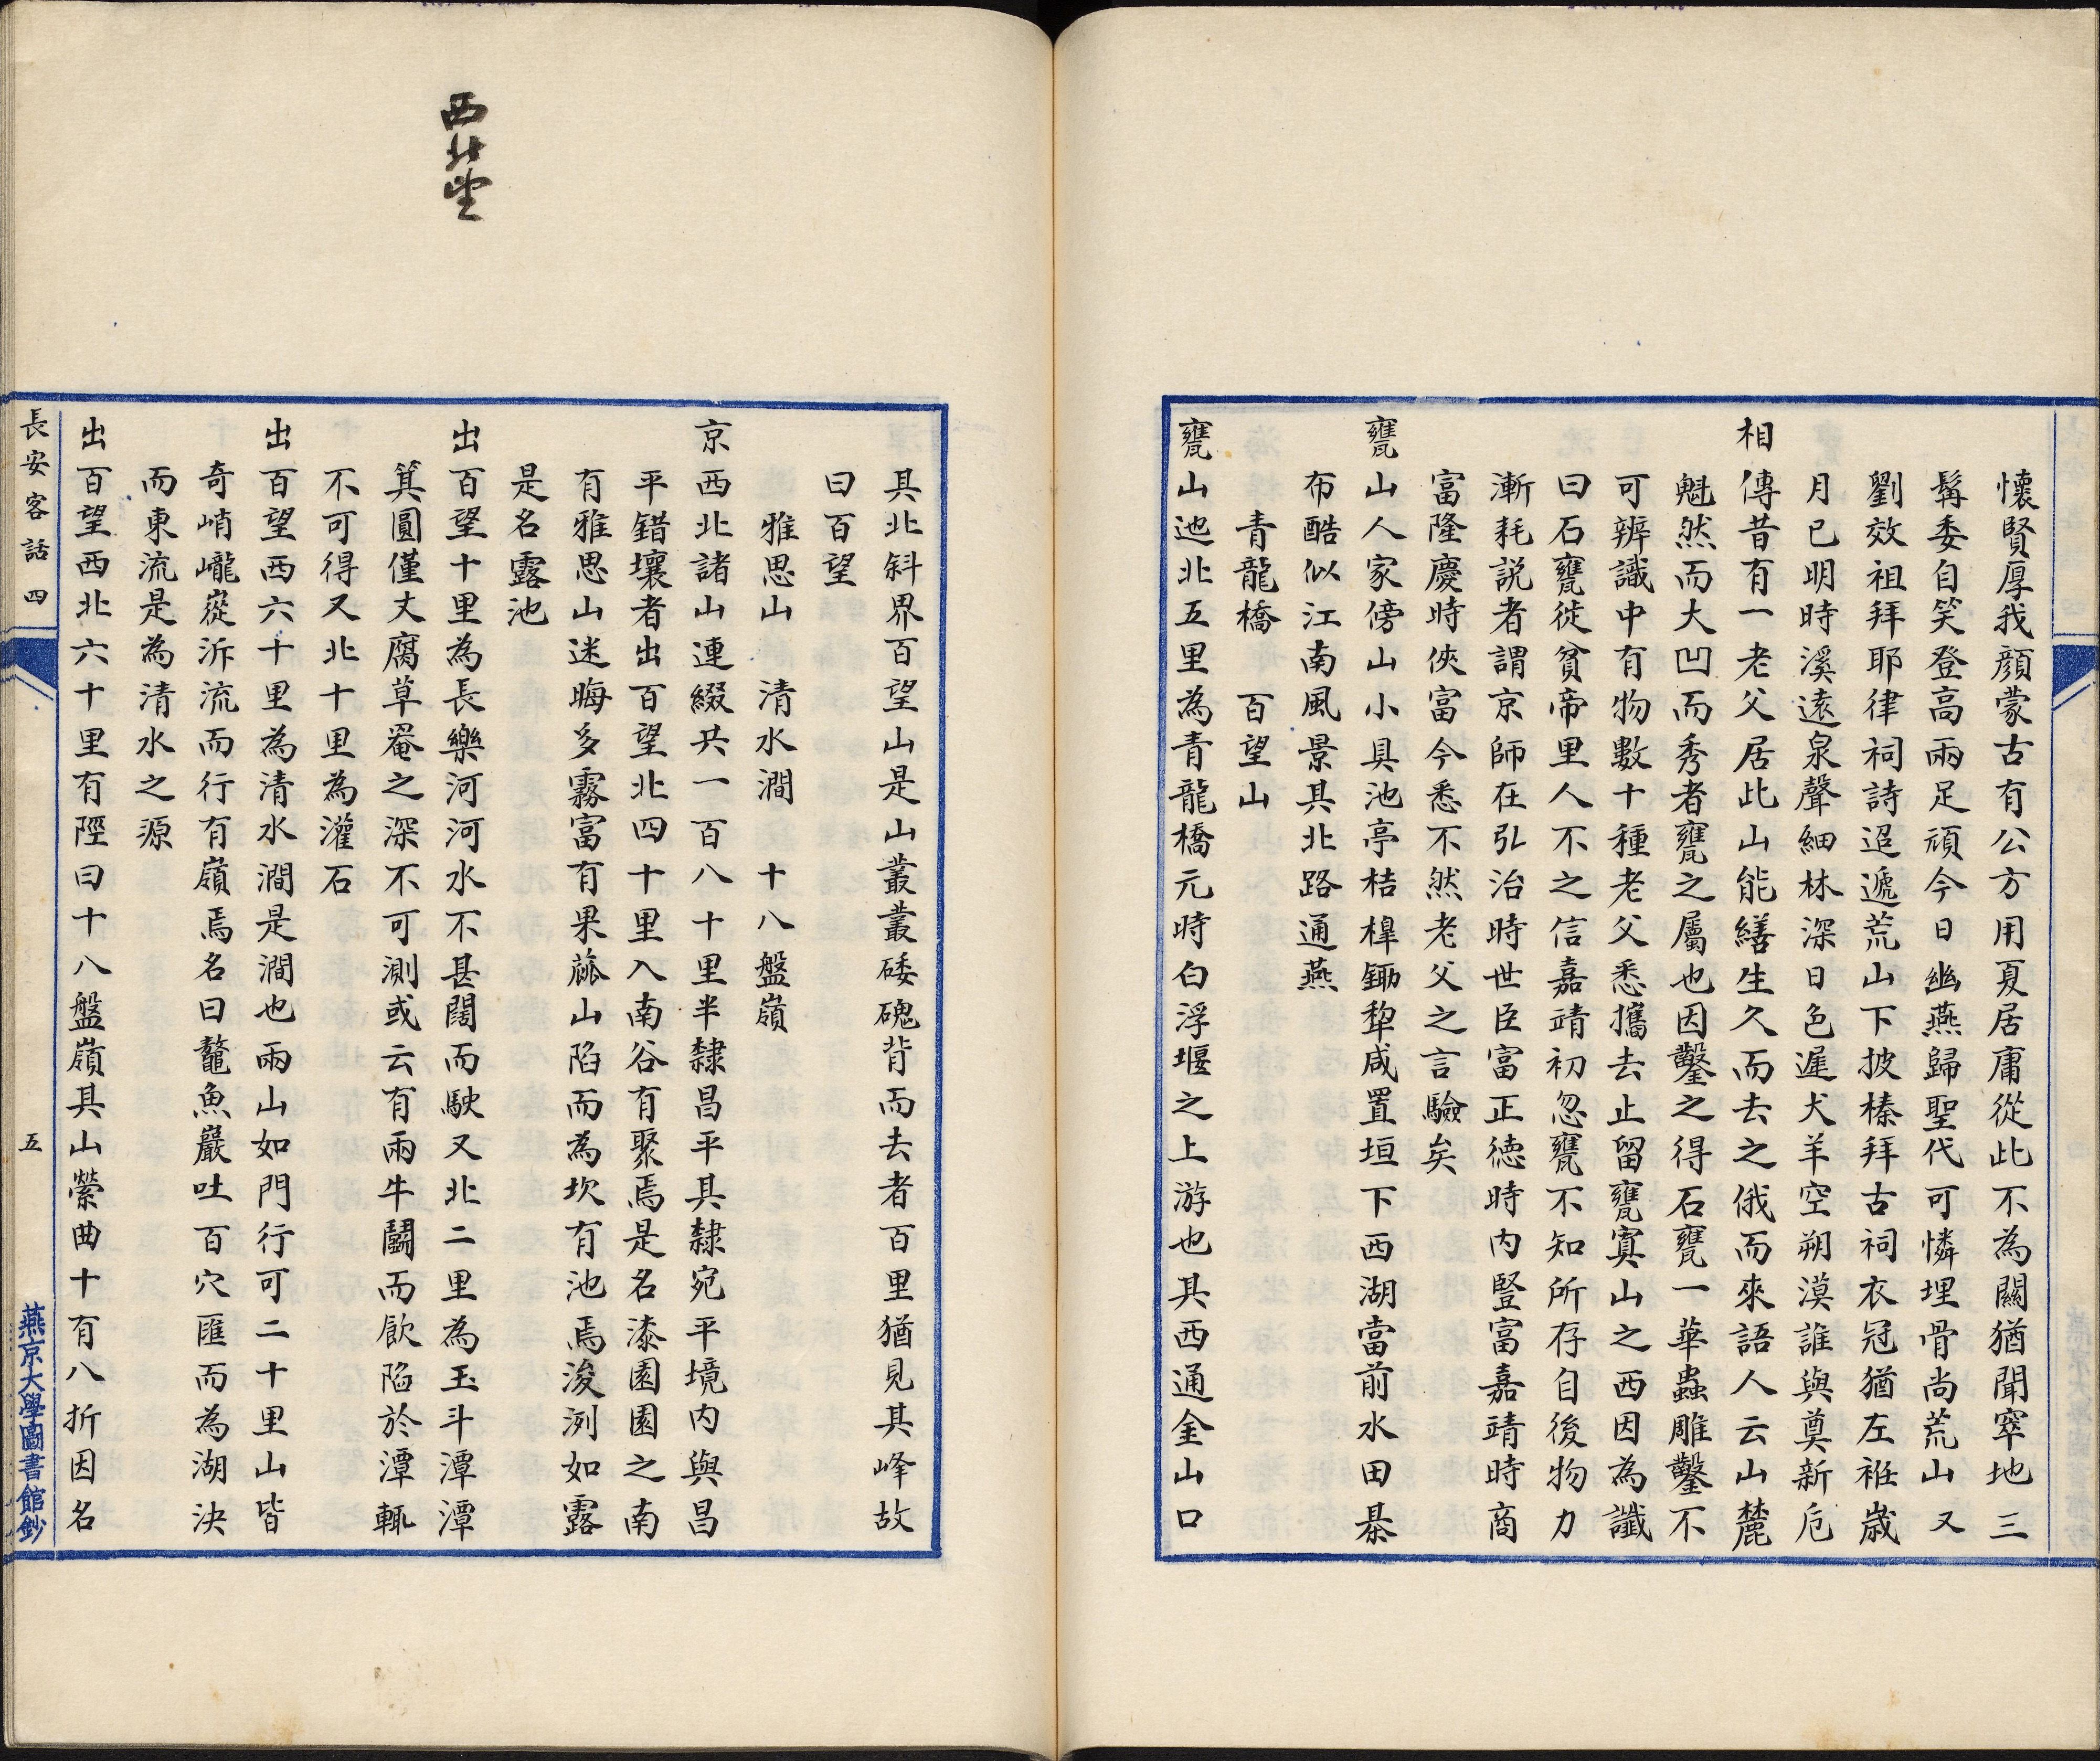 懷賢厚我顏蒙古有公方用夏居庸從此不為關猶聞窣地三
髯委自笑登高兩足頑今日幽燕歸聖代可憐埋骨尚荒山又
劉效祖拜耶律祠詩迢遞荒山下披榛拜古祠衣冠猶左袵歲
月已明時溪遠泉聲細林深日色遲犬羊空朔漠誰與奠新卮
相傳昔有一老父居此山能繕生久而去之俄而來語人云山麓
魁然而大凹而秀者甕之屬也因鑿之得石甕一華蟲雕鑿不
可辨識中有物數十種老父悉攜去止留甕寘山之西因為讖
曰石甕徙貧帝里人不之信嘉靖初忽甕不知所存自後物力
漸耗説者謂京師在弘治時世臣富正德時内豎富嘉靖時商
富隆慶時俠富今悉不然老父之言驗矣
甕山人家傍山小具池亭桔橰鋤犂咸置垣下西湖當前水田棊
布酷似江南風景其北路通燕
青龍橋　百望山
甕山迆北五里為青龍橋元時白浮堰之上游也其西通金山口
西北堂
其北斜界百望山是山叢叢磈磈背而去者百里猶見其峰故
曰百望
雅思山　清水澗　十八盤嶺
京西北諸山連綴共一百八十里半隸昌平其隸宛平境内與昌
平錯壤者出百望北四十里入南谷有聚焉是名漆園園之南
有雅思山迷晦多霧富有果蓏山陷而為坎有池焉浚洌如露
是名露池
出百望十里為長樂河河水不甚闊而駛又北二里為玉斗潭潭
箕圓僅丈腐草罨之深不可測或云有兩牛鬬而飲陷於潭輒
不可得又北十里為灌石
出百望西六十里為清水澗是澗也兩山如門行可二十里山皆
奇峭巄嵸泝流而行有嶺焉名曰鼇魚巖吐百穴匯而為湖決
而東流是為清水之源
出百望西北六十里有陘曰十八盤嶺其山縈曲十有八折因名
長安客話 四
五
燕京大學圖書館鈔